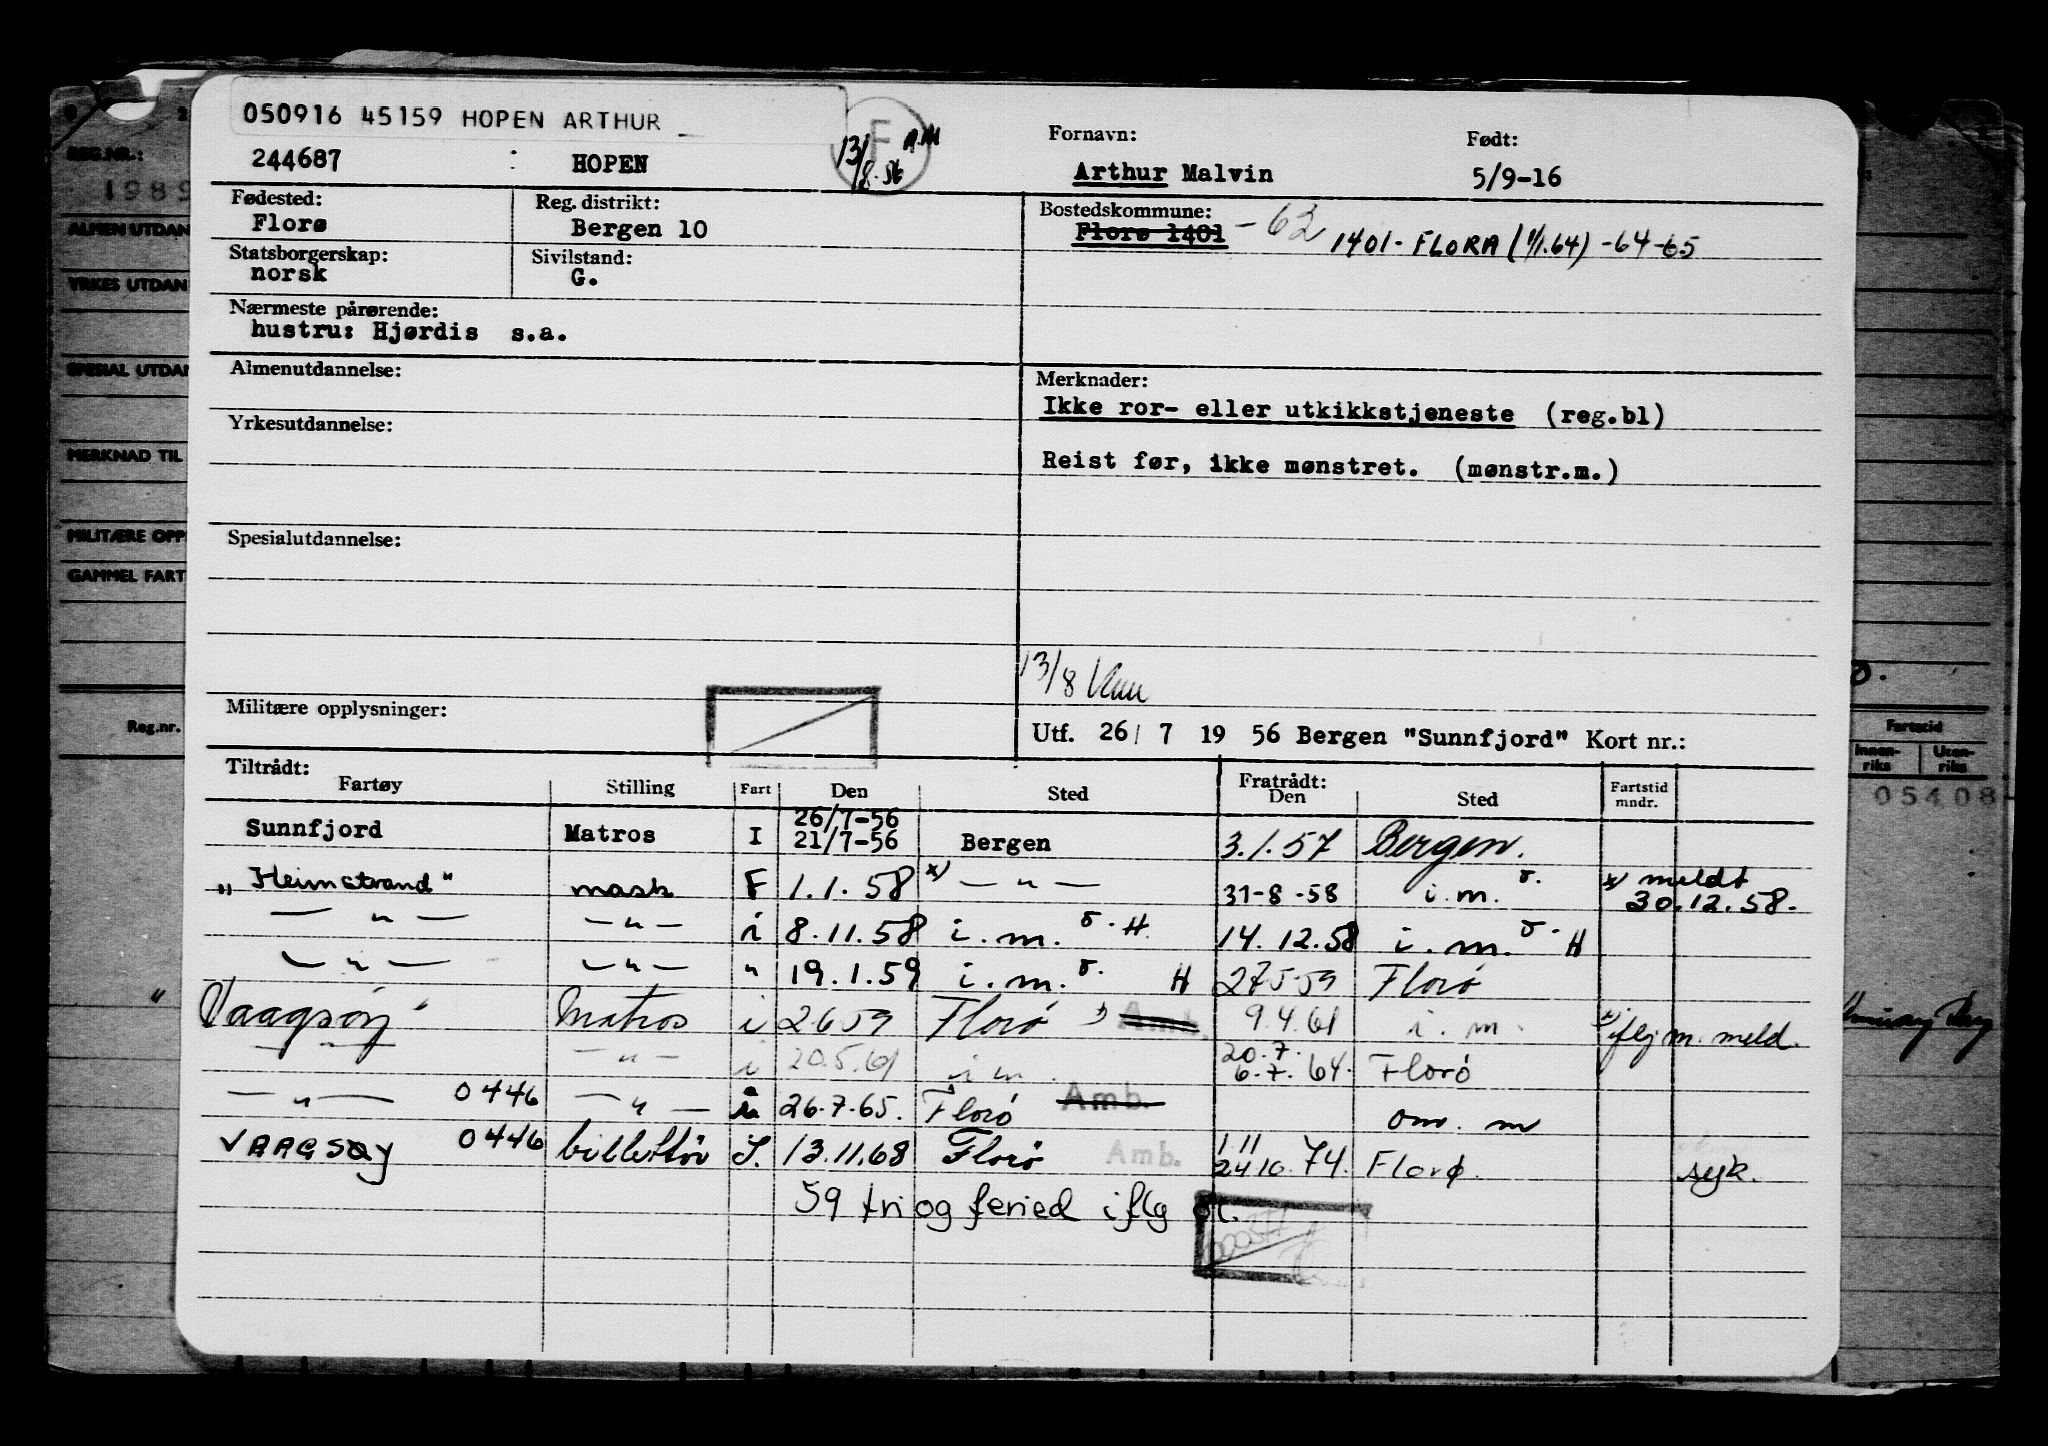 050916 45159 HOPEN ARTHUR
244687 HOPEN
F
13/8.56
Fornavn: Født:
Arthur Malvin 5/9-16
Fødested: Reg. distrikt: Bostedskommune:
Florø Bergen 10 Florø 1401 -62 1401- FLORA (1/1.64) -64-65
Statsborgerskap: Sivilstand:
norsk G.
Nærmeste pårørende:
hustru: Hjørdis s.a.
Almenutdannelse: Merknader:
Ikke ror- eller utkikkstjeneste (reg.bl)
Yrkesutdannelse:
Reist før, ikke mønstret. (mønstr.m.)
Spesialutdannelse:
13/8
Militære opplysninger: Utf. 26/ 7 19 56 Bergen "Sunnfjord" Kort nr.:
Tiltrådt: Fratrådt:
Fartøy Stilling Fart Den Sted Den Sted Fartstid mndr.
26/7-56
Sunnfjord Matros I 21/7-56 Bergen 3.1.57 Bergen.
"Heimstrand" mask F 1.1.58 x) — " — 31-8-58 i.m. x) meldt 30.12.58.
— " — — " — i 8.11.58 i.m. H 14.12.58 i.m. H
— " — — " — " 19.1.59 i.m. H 27559 Florø
"Vaagsøy" Matros i 2659 Florø Amb. 9.4.61 i.m. iflg m. meld.
— " — — " — i 20.5.61 i m. 20.7. 6.7.64. Florø
— " — 0446 — " — 26.7.65. Florø Amb. om. m
VAAGSØY 0446 billettør 13.11.68 Florø Amb. 1 11 24 10.74. Florø. syk.
59 fri og feried iflg
REG.NR.:
1989
ALMEN UTDAN
YRKES UTDAN
SPESIAL UTDAN
MERKNAD TIL
MILITÆRE OPP
GAMMEL FART
Reg.nr.
Fartstid
Innenriks Utenriks
05408